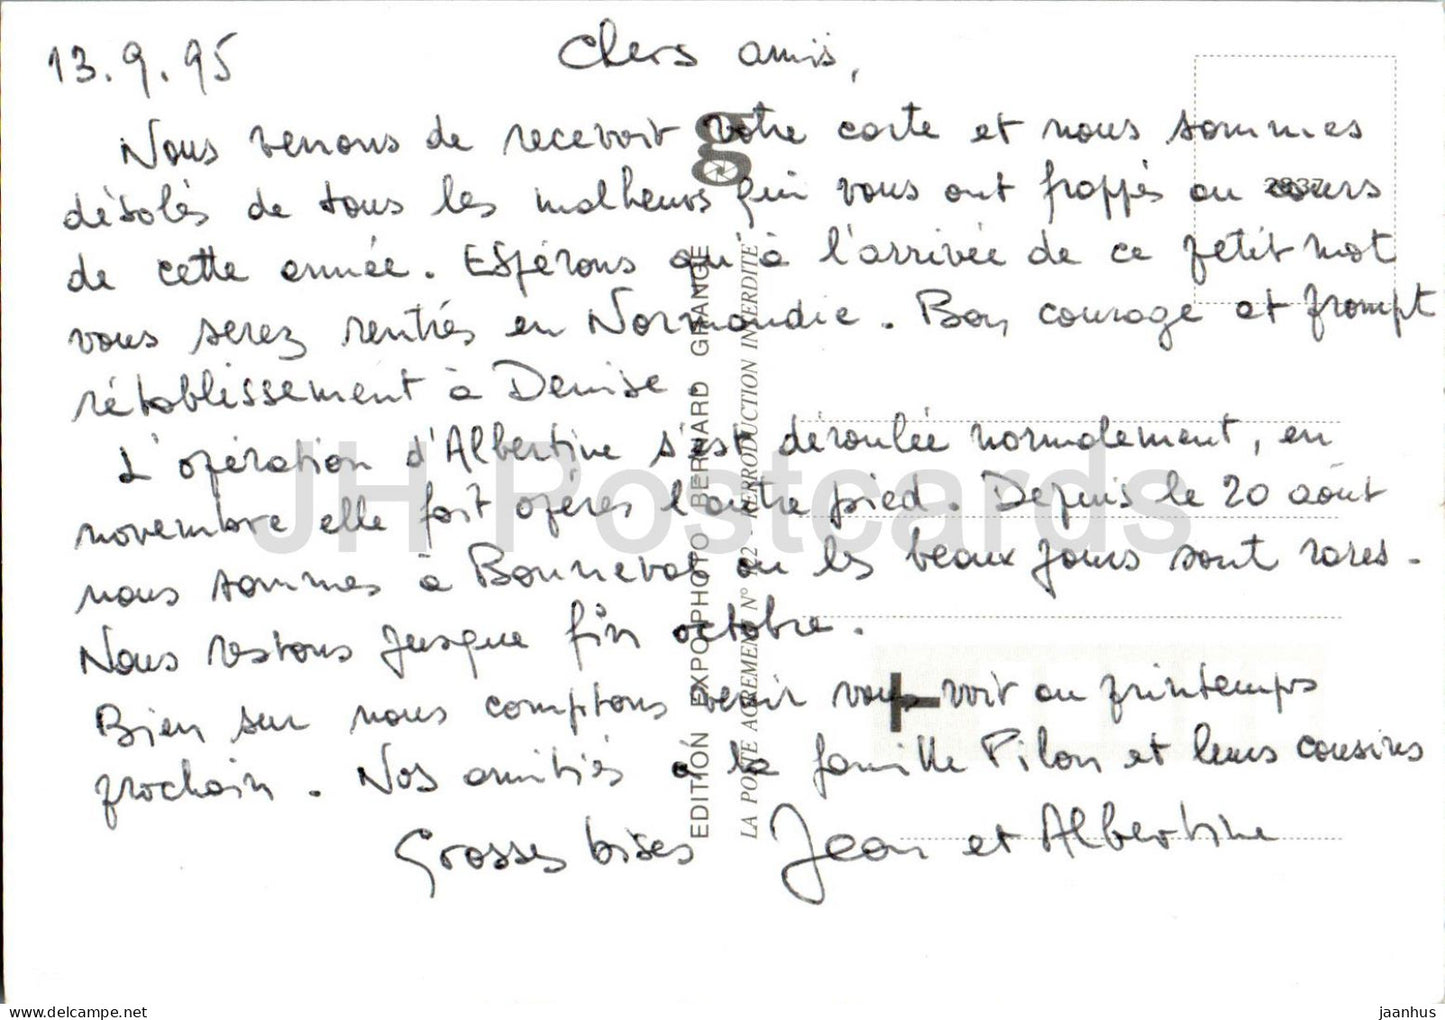 13.9.95
Chers amis,
Nous venons de recevoir votre carte et nous sommes
désolés de tous les malheurs qui vous ont frappés au cours
de cette année. Espérons qu'à l'arrivée de ce petit mot
vous serez rentrés en Normandie. Bon courage et prompt
rétablissement à Denise.
L'opération d'Albertine s'est déroulée normalement, en
novembre elle fait opérer l'autre pied. Depuis le 20 août
nous sommes à Bonneval ou les beaux jours sont rares.
Nous restons jusque fin octobre.
Bien sur nous comptons venir vous voir au printemps
prochain. Nos amitiés à la famille Pilon et leurs cousins
Grosses bises Jean et Albertine
g
2837
EDITION EXPO PHOTO BERNARD GRANGE
LA POSTE AGREMENT N° 922 - REPRODUCTION INTERDITE
JH Postcards
jhpostcards.net
jaanhus